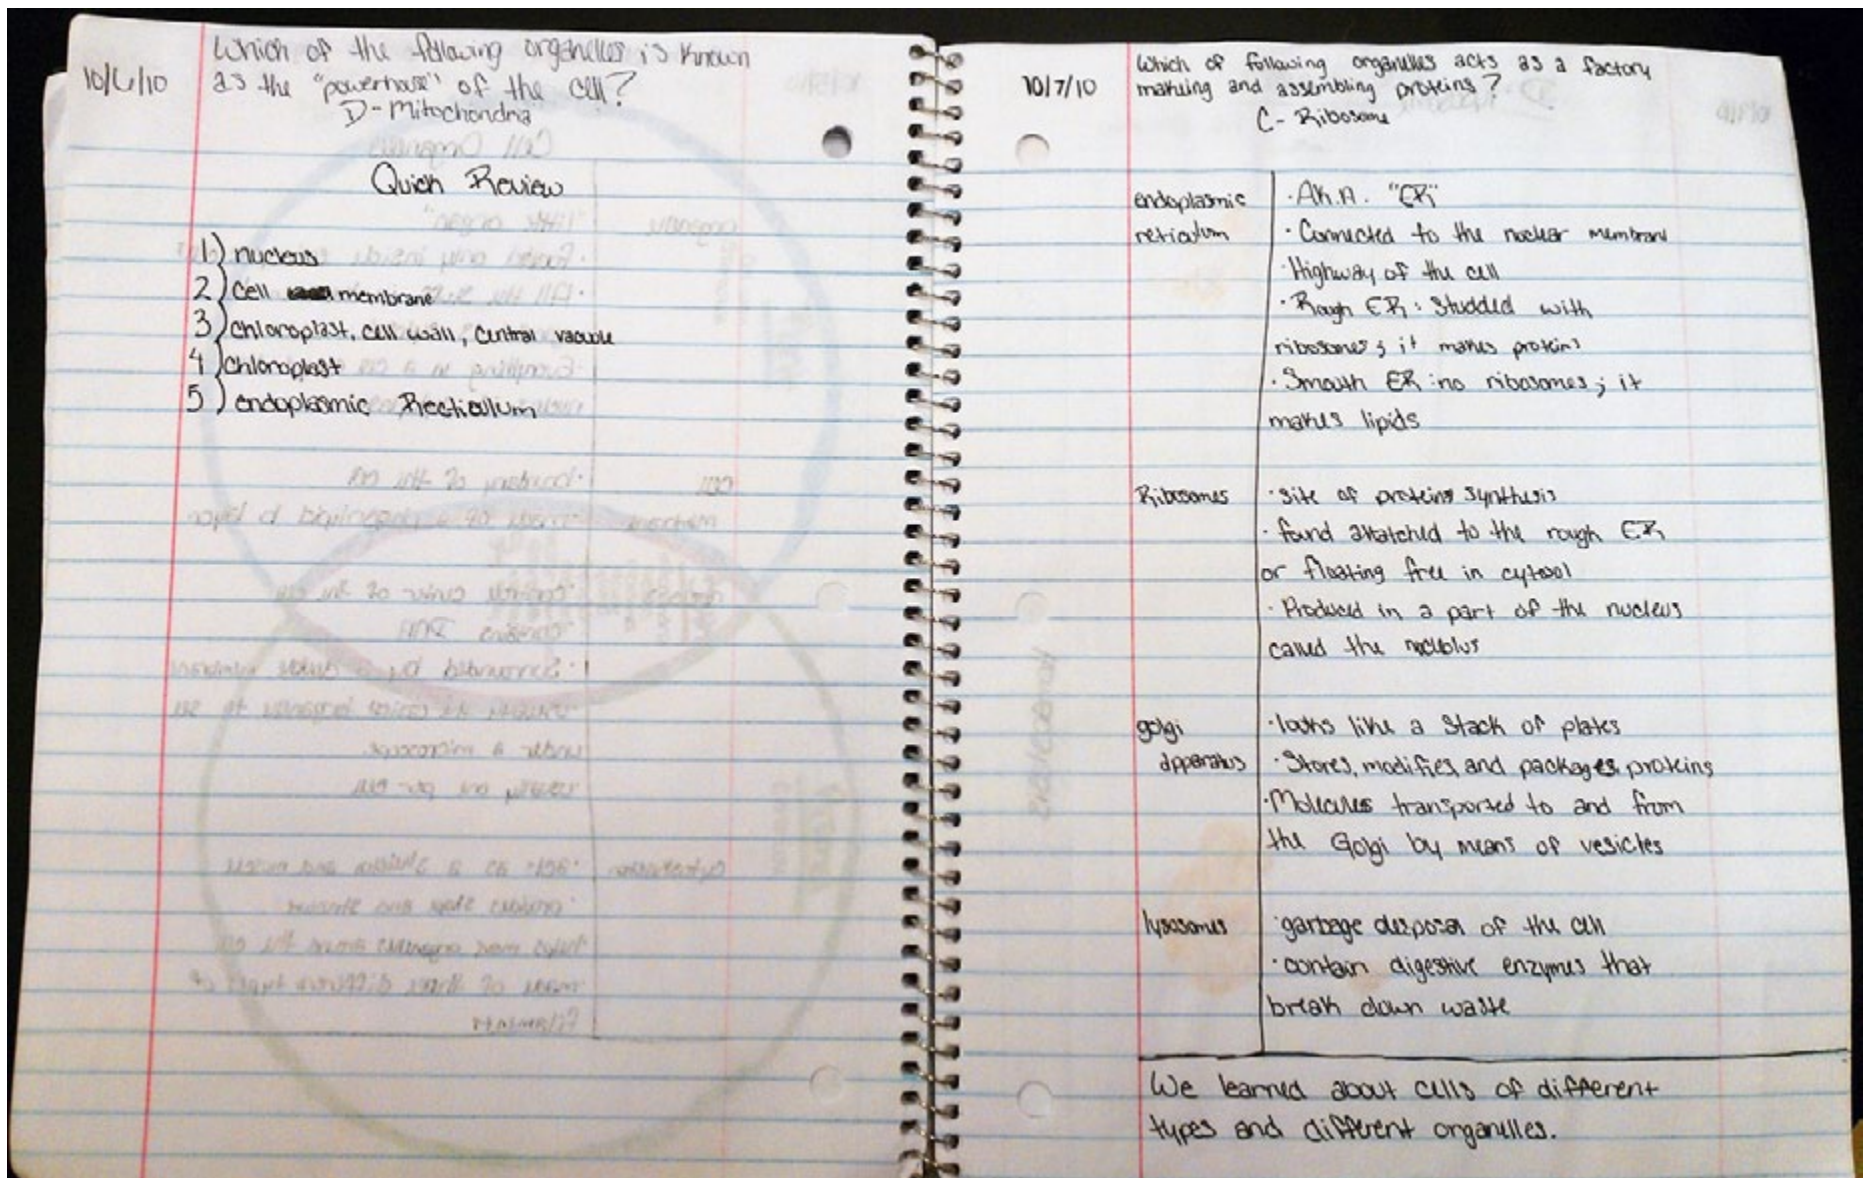 Which of the following organelles is known
10/6/10 as the "powerhouse" of the cell?
D - Mitochondria
Quick Review
1) nucleus
2) cell membrane
3) chloroplast, cell wall, central vacuole
4) chloroplast
5) endoplasmic Recticulum
Which of following organelles acts as a factory
10/7/10 making and assembling proteins?
C - Ribosome
endoplasmic · A.K.A. "ER"
reticulum · Connected to the nuclear membrane
· Highway of the cell
· Rough ER: Studded with
ribosomes; it makes proteins
· Smooth ER: no ribosomes; it
makes lipids
Ribosomes · site of proteins synthesis
· found attatched to the rough ER
or floating free in cytosol
· Produced in a part of the nucleus
called the
golgi · looks like a stack of plates
apparatus · Stores, modifies, and packages proteins
· Molecules transported to and from
the Golgi by means of vesicles
lysosomes · garbage disposal of the cell
· contain digestive enzymes that
break down waste
We learned about cells of different
types and different organelles.